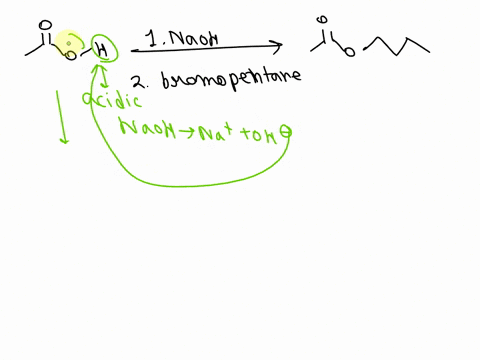 O O
O H 1. NaOH O
2. bromopentane
acidic
NaOH → Na+ + OH ⊖